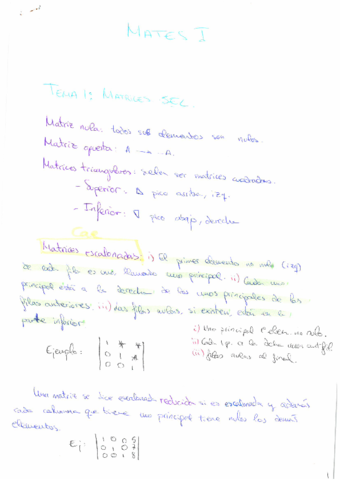 MATES I
TEMA 1: MATRICES SEL.
Matriz nula: todos sus elementos son nulos.
Matriz opuesta: A → -A.
Matrices triangulares: deben ser matrices cuadradas.
- Superior: pico arriba, izq.
- Inferior: pico abajo, derecha
Cae
Matrices escalonadas: i) El primer elemento no nulo (izq)
de cada fila es uno llamado uno principal. ii) Cada uno
principal está a la derecha de los unos principales de las
filas anteriores. iii) Las filas nulas, si existen, están en la
parte inferior
i) Uno principal 1º elem. no nulo.
ii) Cada 1p. a la derecha
iii) filas nulas al final.
Ejemplo: | 1 * * |
| 0 1 * |
| 0 0 1 |
Una matriz se dice escalonada reducida si es escalonada y además
cada columna que tiene uno principal tiene nulos los demás
elementos.
Ej: | 1 0 0 5 |
| 0 1 0 7 |
| 0 0 1 8 |
1